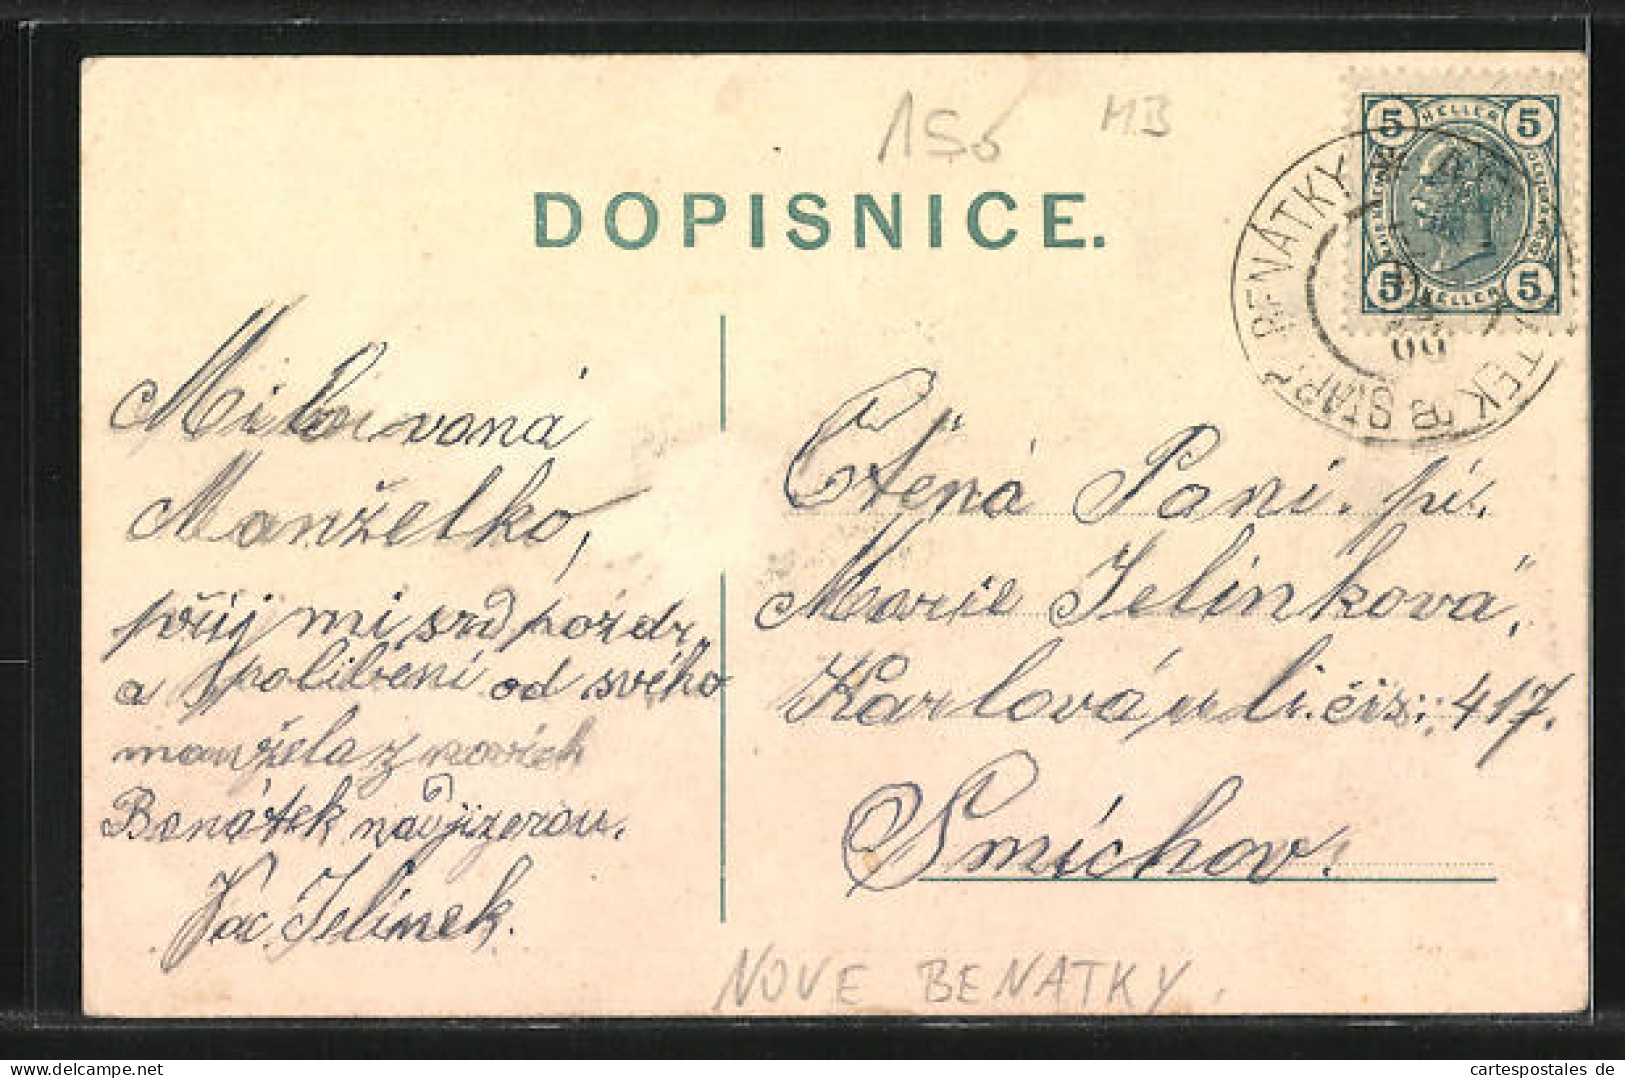 156 MB
DOPISNICE.
5 HELLER 5
5 HELLER 5
BENÁTKY
Milovaná
Manželko,
přijj mi srd pozdr,
a políbení od svého
manžela z novích
Benátek nad jizerou.
Vac. Jelínek.
Ctěná Paní. pí.
Marie Jelínková,
Karlová uli. čís: 417.
Smíchov.
NOVE BENATKY.
cartespostales de